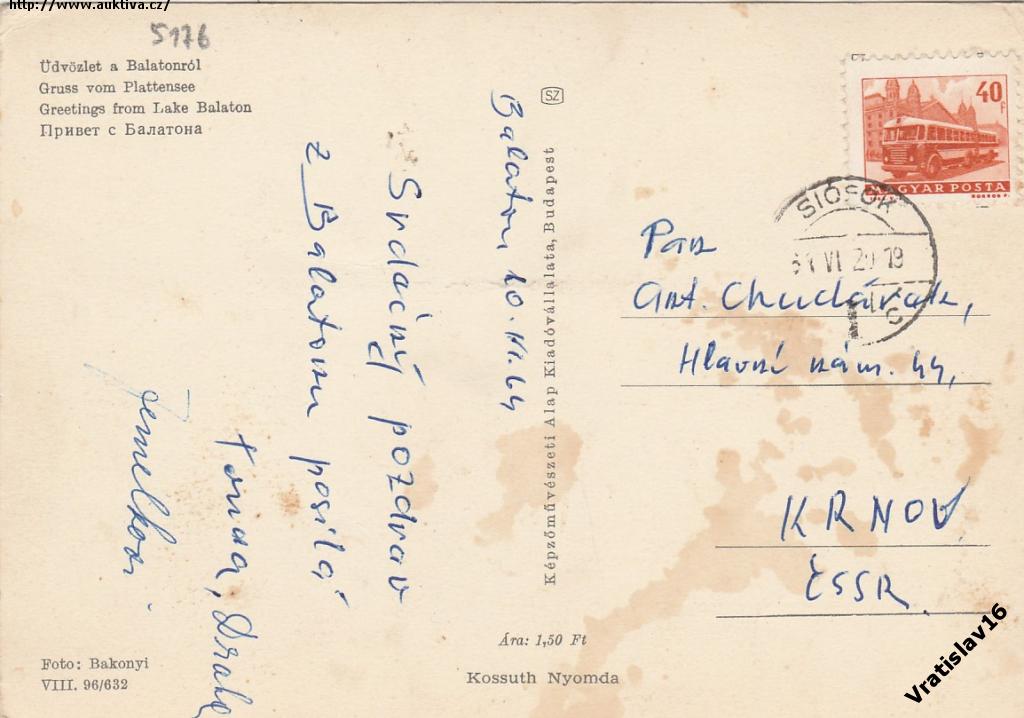 http://www.auktiva.cz/
5176
Üdvözlet a Balatonról
Gruss vom Plattensee
Greetings from Lake Balaton
Привет с Балатона
SZ
Balaton 10. VI. 64
Srdečný pozdrav
z Balatonu posílá
Tonda, Draha
Jemelkovi
Képzőművészeti Alap Kiadóvállalata, Budapest
40f
MAGYAR POSTA
SIÓFOK
VI 20 19
Pan
Ant. Chudárek,
Hlavní nám. 44,
KRNOV
ČSSR.
Ára: 1,50 Ft
Foto: Bakonyi
VIII. 96/632
Kossuth Nyomda
Vratislav16